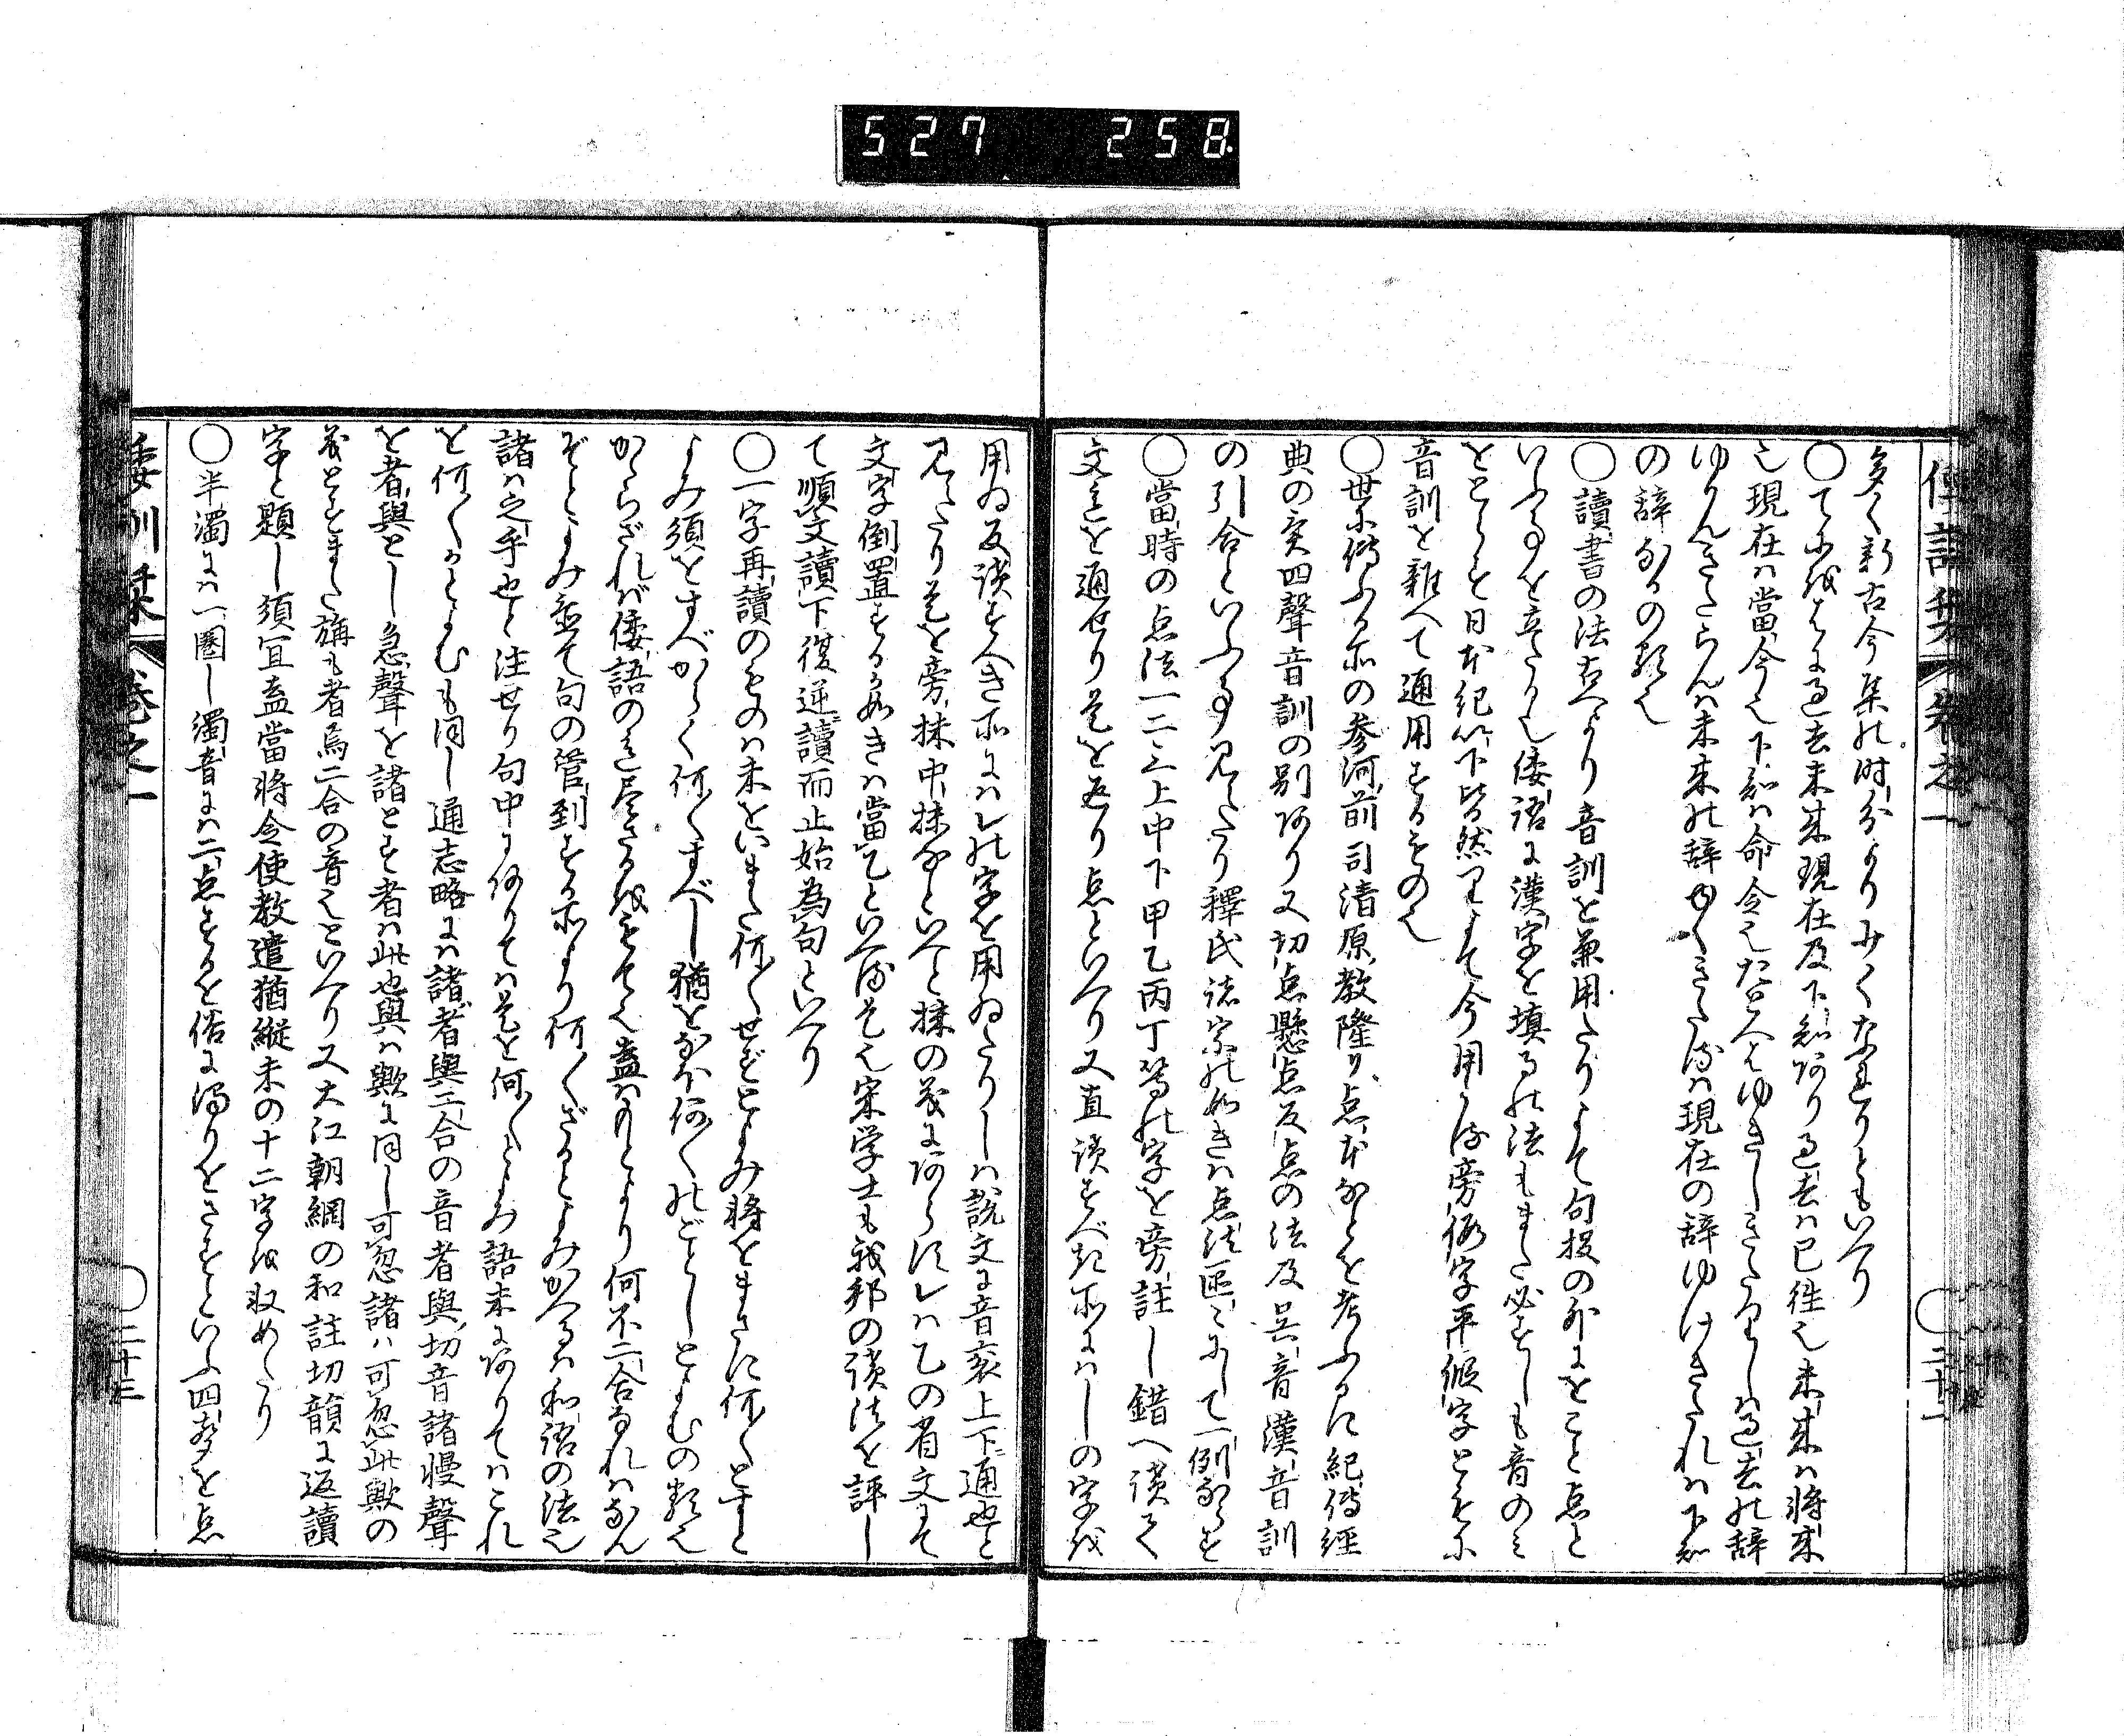 527 258
多く新古今集の時分よりみたくなれりともいへり
◯てにをはに過去未来現在及下知あり過去は已往也未来は将来
也現在は當今也下知は命令也たとへはゆきしきたりしは過去の辞
ゆかんきたらんは未来の辞ゆくきたるは現在の辞ゆけきたれは下知
の辞なるの類也
◯讀書の法古へより音訓を兼用たりよて句投の外にをこと点と
いふ事を立たり也倭語に漢字を填るの法もまた必すしも音のミ
をとらす日本紀以下皆然りよて今用る所旁仮字平假字ともに
音訓を雜へて通用するもの也
◯世に傳ふる所の參河前司清原教隆か点本なとを考ふるに紀傳經
典の異四聲音訓の別あり又切点懸点反点の法及呉音漢音訓
の引合といふ事見えたり釋氏諸宗の如きは点法區々にして一例ならす
◯當時の点法一二三上中下甲乙丙丁等の字を旁註し錯へ讀て
文意を通せり是を返り点といへり又直讀すべき所にはしの字を
用ゐ反讀すへき所にはレの字を用ゐたりしは説文に音衮上下通也と
見えたり是を旁抹中抹なといへと抹の義にあらすレは乙の省文にて
文字倒置する如きは當乙といへる是也宋学士も我邦の讀法を評し
て順文讀下復逆讀而止始為句といへり
◯一字再讀のものは未をいまた何〱せずとよみ將をまさに何〱とすと
よみ須をすべからく何〱すべし猶をなほ何〱のごとしとよむの類也
からざれば倭語の意尽さるをもて也盍はもとより何不二合なれはなん
ぞとよみ並て句の管到する所より何〱ざるとよみかへるは和語の法也
諸は之乎也と注せり句中にありては是を何〱とよみ語末にありてはこれ
を何〱かとよむも同し通志略には諸者與二合の音者與切音諸慢聲
を者與とし急聲を諸とす者は此也與は歟に同し可忽諸は可忽此歟の
義とすまた旃も者焉二合の音也といへり又大江朝綱の和註切韻に返讀
字と題し須宜盍當将令使教遣猶縦未の十二字を収めたり
◯半濁には一圏し濁音には二点するを俗に濁りをさすといふ四声を点
倭訓栞 巻之一 二十三